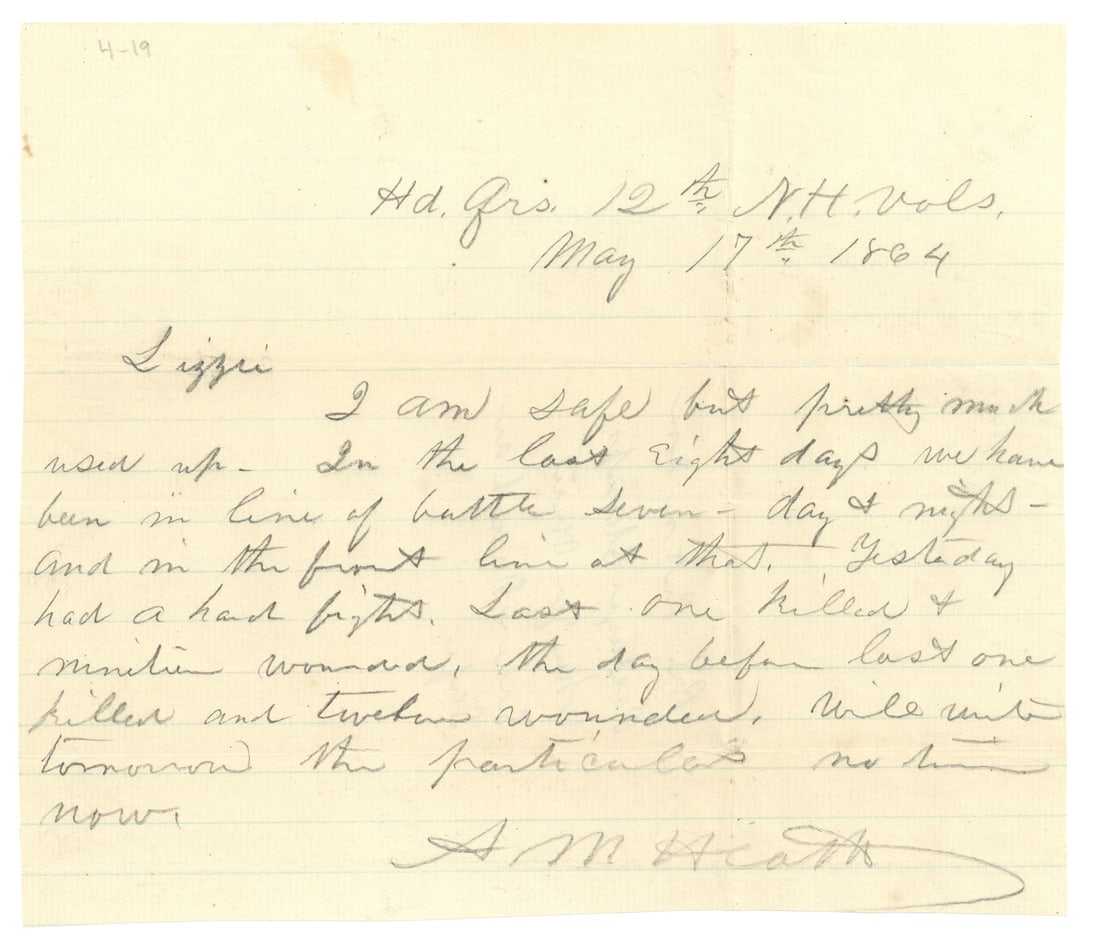 4-19
Hd. Qrs. 12th N.H. Vols.
May 17th 1864
Lizzie
I am safe but pretty much
used up - In the last Eight days we have
been in line of battle seven - day & night -
and in the front line at that. Yestaday
had a hard fight. Lost one killed &
ninetien wounded, the day before lost one
killed and twelve wounded, Will write
tomorrow the particulars no time
now.
A M Heath